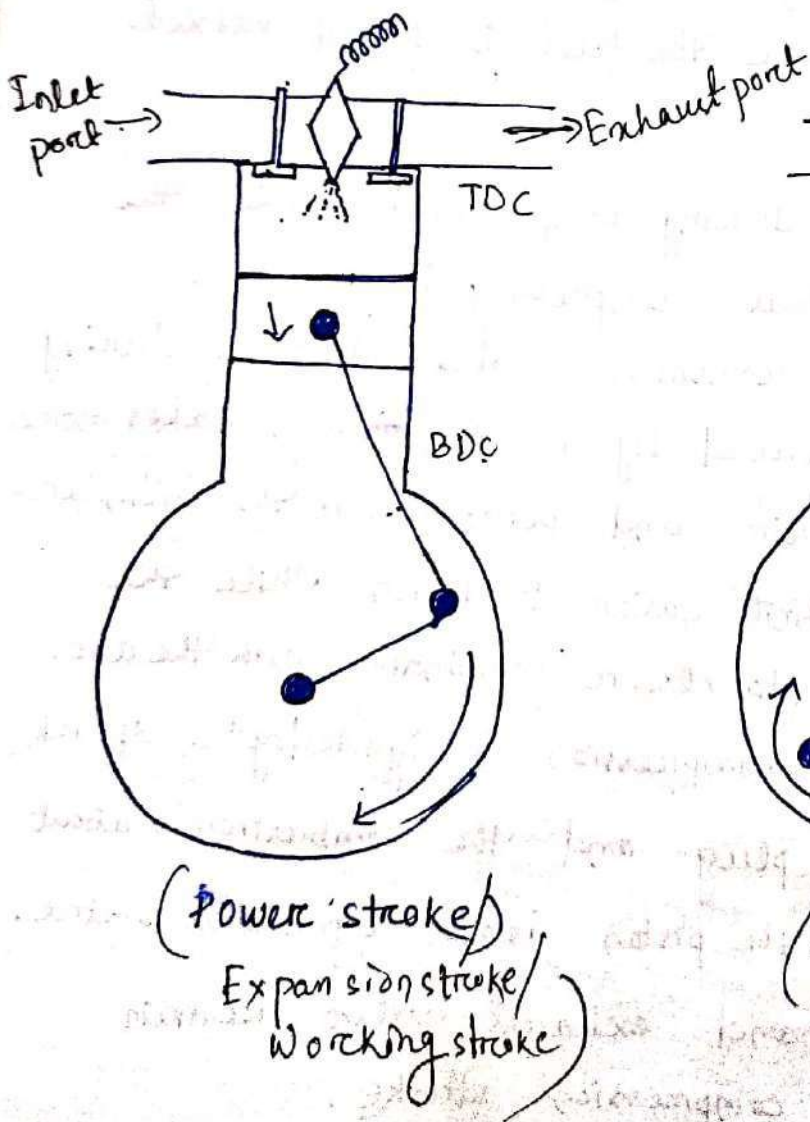 Inlet
port
Exhaust port
TDC
BDC
(Power stroke/
Expansion stroke/
Working stroke)